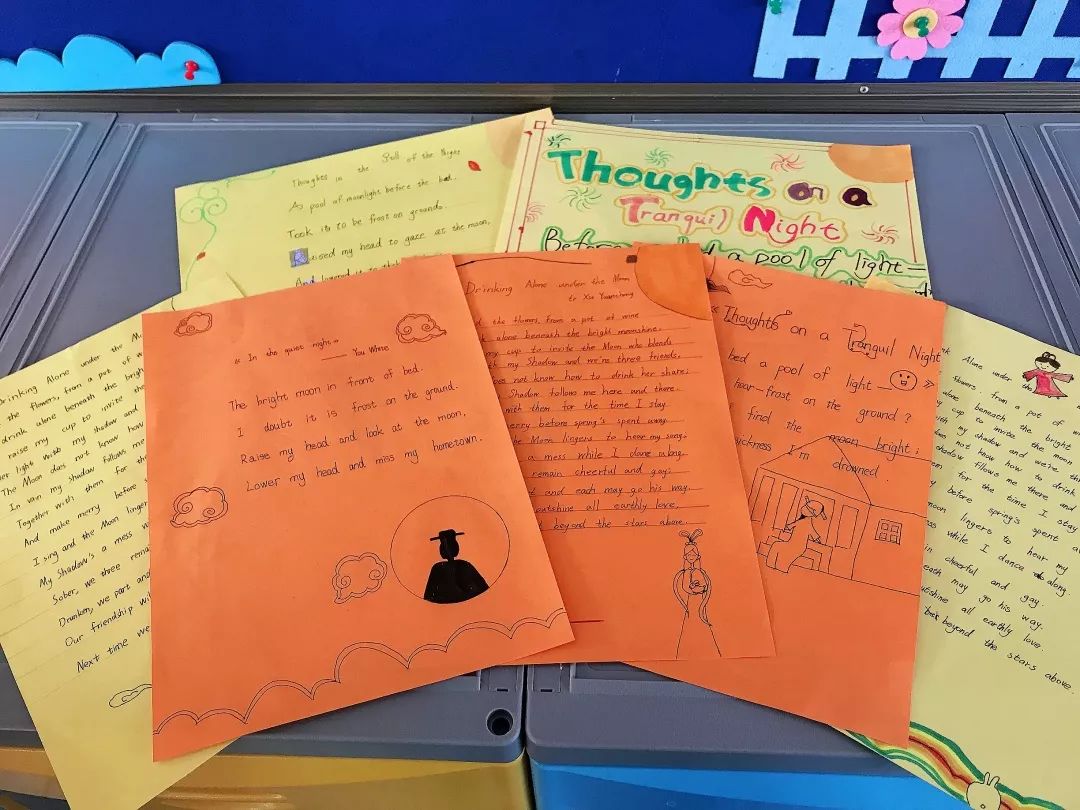 Thoughts in the Still of the Night
A pool of moonlight before the bed.
Took it to be frost on grounds.
Raised my head to gaze at the moon,
And lowered it to
Thoughts on a
Tranquil Night
Before a pool of light—
Drinking Alone under the
the flowers, from a pot of
drink alone beneath the
raise my cup to invite the
her light with my shadow and
The Moon does not know how
In vain my Shadow follows me
Together with them for the
And make merry before
I sing and the Moon linger
My Shadow's a mess
Sober, we three rema
Drunken, we part and
Our friendship wil
Next time we
« In the quiet night »
—— You Whose
The bright moon in front of bed.
I doubt it is frost on the ground.
Raise my head and look at the moon,
Lower my head and miss my hometown.
Drinking Alone under the Moon
tr Xu Yuanchong
the flowers, from a pot of wine
alone beneath the bright moonshine.
my cup to invite the Moon who blends
my Shadow and we're three friends.
does not know how to drink her share;
Shadow follows me here and there.
with them for the time I stay
merry before spring's spent away.
the Moon lingers to hear my song.
a mess while I dance along.
remain cheerful and gay;
and each may go his way.
outshine all earthly love,
beyond the stars above.
« Thoughts on a Tranquil Night
bed a pool of light— »
hoar-frost on the ground?
find the moon bright;
I'm drowned
Alone under
flowers, from a pot of
alone beneath the bright
cup to invite the Moon
with my shadow and we're
does not know how to drink
shadow flows me there and
for the time I stay
before spring's spent
moon lingers to hear my
while I dance along.
cheerful and gay.
each may go his way.
outshine all earthly love
beyond the stars above.